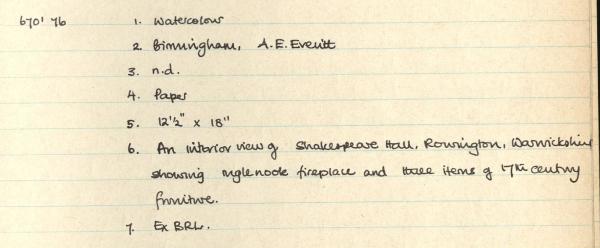 670'76 1. Watercolour
2. Birmingham, A.E. Everitt
3. n.d.
4. Paper
5. 12½" x 18"
6. An interior view of Shakespeare Hall, Rowington, Warwickshire
showing inglenook fireplace and three items of 17th century
furniture.
7. Ex BRL.